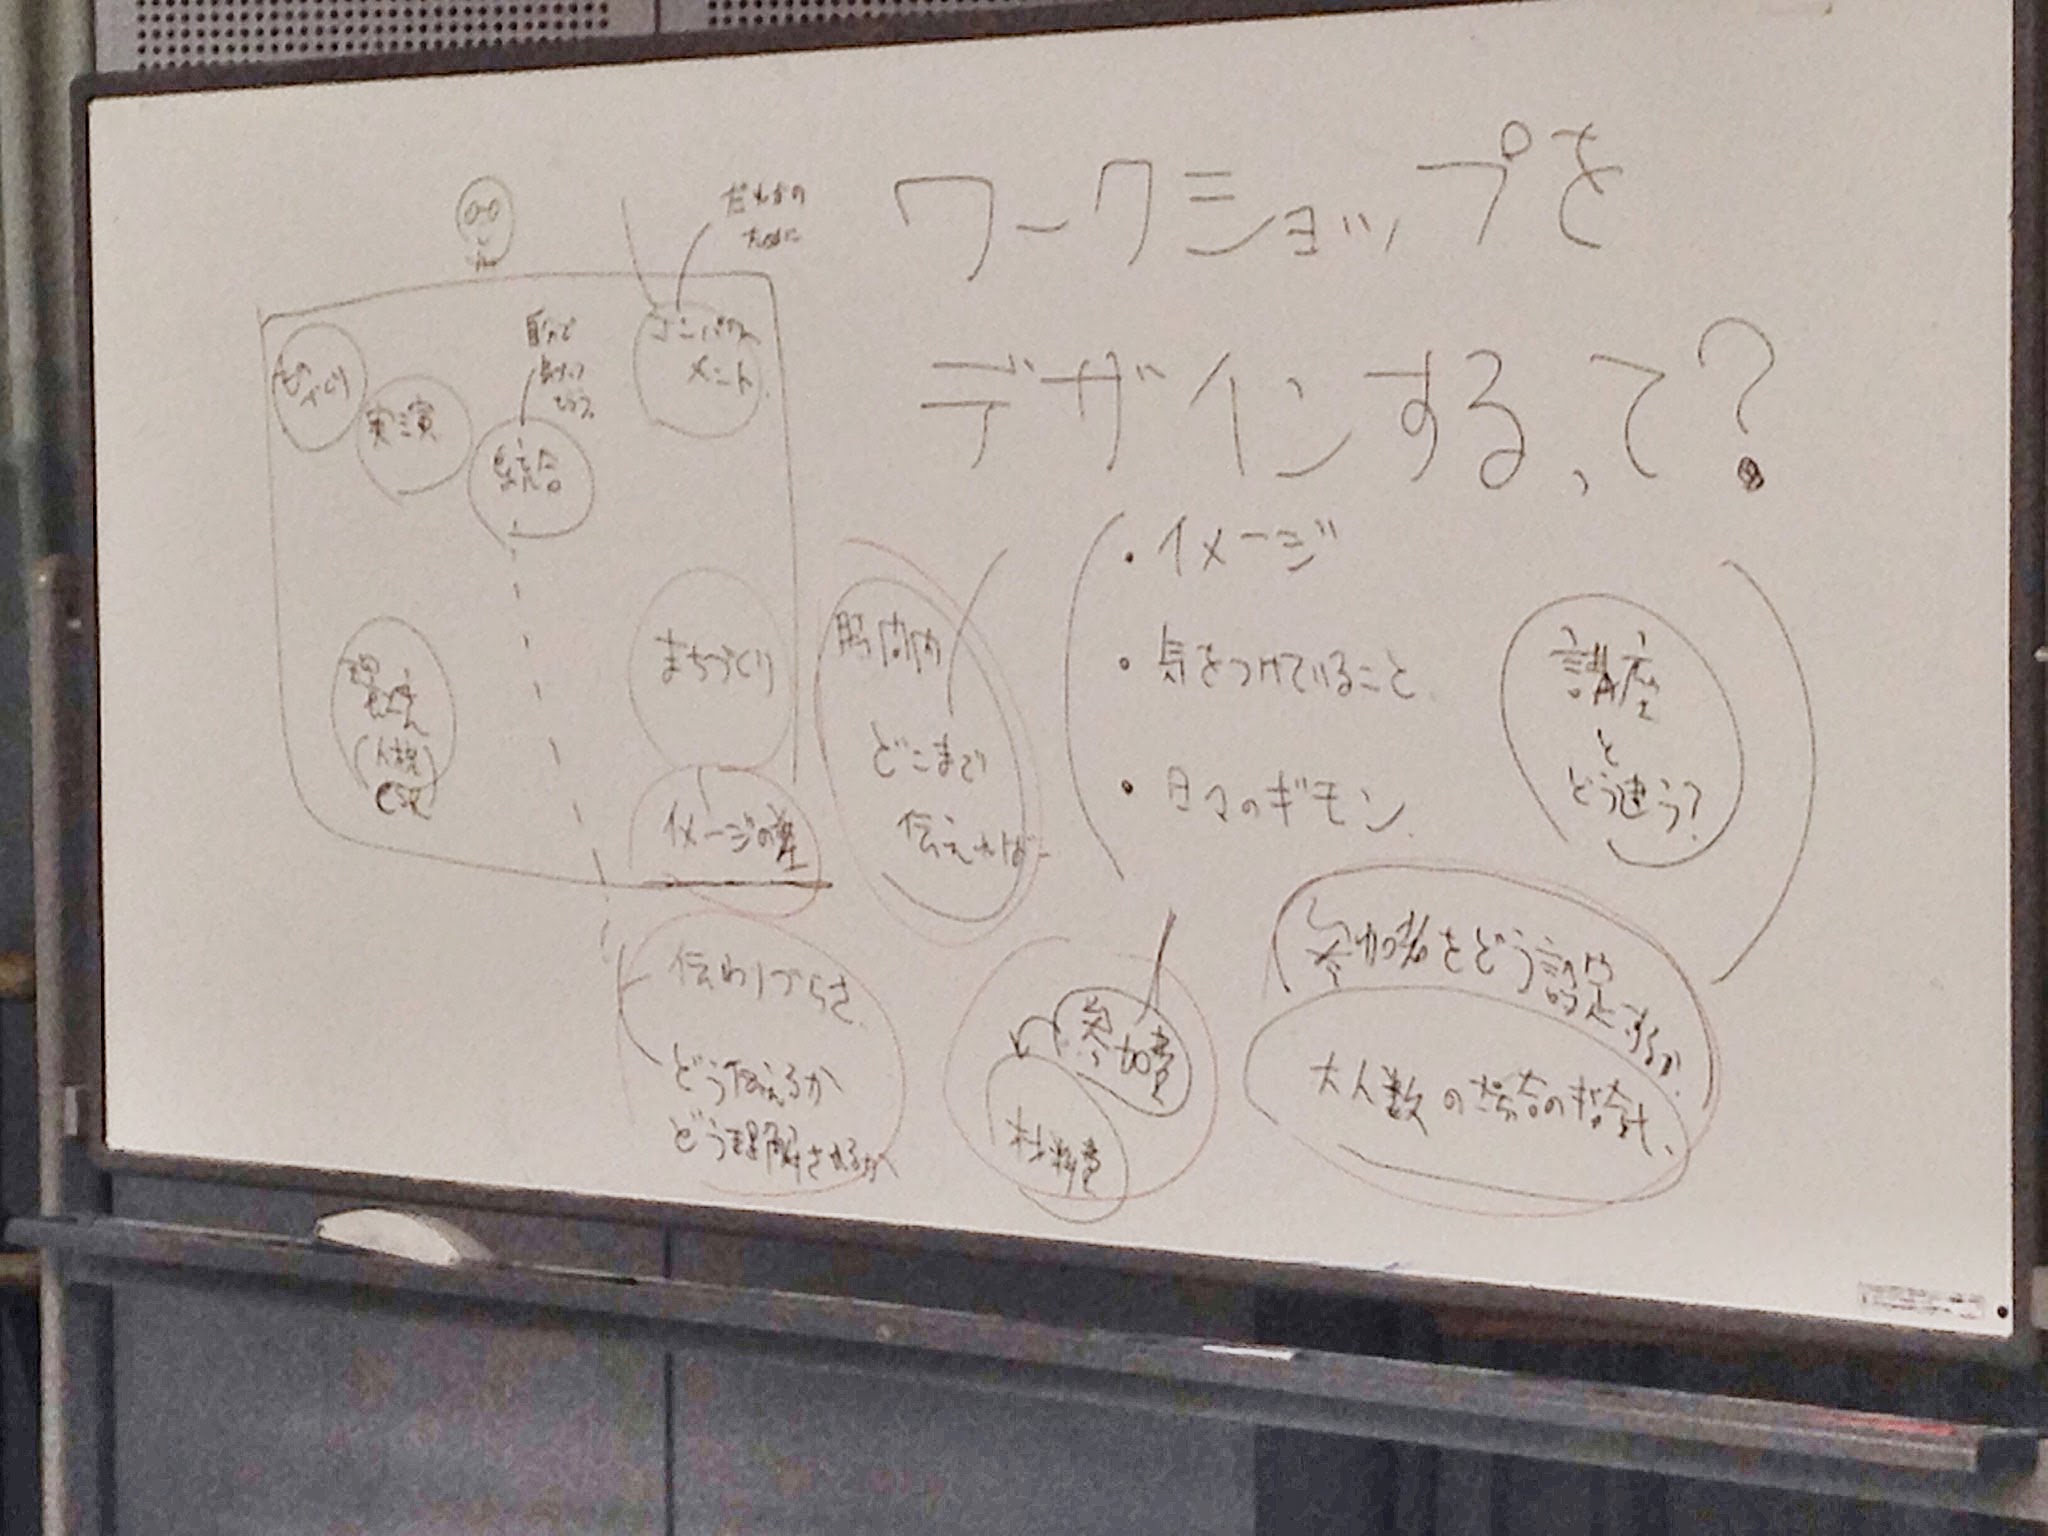 ワークショップを
デザインする、って?
・イメージ
・気をつけていること
・日々のギモン
講座
と
どう違う?
だれかの
ために
ものづくり
実演
統合
自分で
エンパワー
メント
環境
まちづくり
イメージの差
時間内
どこまで
伝えれば
伝わりづらさ
どう伝えるか
どう理解されるか
参加費
材料費
参加者をどう設定するか
大人数の場合の指針